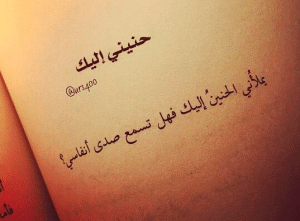 حنيني إليك
@ur1400
يملأُني الحنينُ إليك فهل تسمع صدى أنفاسي؟